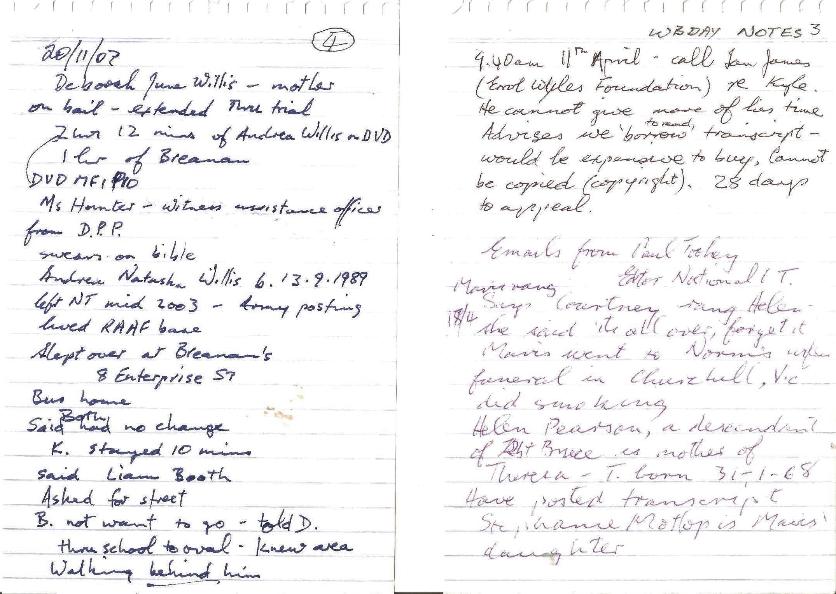 4
20/11/07
Deborah June Willis - mother
on bail - extended thru trial
2 hrs 12 mins of Andrea Willis on DVD
1 hr of Breanan
DVD MFI P10
Ms Hunter - witness assistance officer
from D.P.P.
swears on bible
Andrea Natasha Willis b. 13.9.1989
left NT mid 2003 - Army posting
lived RAAF base
Slept over at Breanan's
8 Enterprise ST
Bus home
Both
Said had no change
K. stayed 10 mins
said Liam Booth
Asked for street
B. not want to go - told D.
thru school to oval - knew area
Walking behind him
WBDAY NOTES 3
9.40am 11th April - call Ian James
(Errol Wyles Foundation) re Kyle.
He cannot give more of his time
to read,
Advises we 'borrow' transcript -
would be expensive to buy, Cannot
be copied (copyright). 28 days
to appeal.
Emails from Paul Toohey
Mavis rang Editor National I T.
Says Courtney rang Helen -
18/4 she said its all over, forget it
Mavis went to Norm's
funeral in Churchill, Vic
did smoking
Helen Pearson, a descendant
of Bruce is mother of
Theresa - T. born 31-1-68
Have posted transcript
Stephanie Motlop is Mavis'
daughter